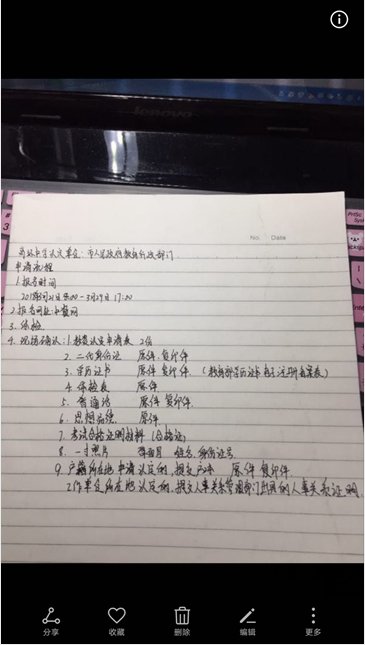 lenovo
No. Date
高级中学认定单位：市人民政府教育行政部门
申请流程
1.报名时间
2018年3月21日 8:00-3月29日 17:00
3.体检
4.现场确认：1.教资认定申请表 2份
2.二代身份证 原件.复印件
3.学历证书 原件 复印件 (教育部学历证书电子注册备案表)
4.体检表 原件
5.普通话 原件 复印件
6.思想品德 原件
7.考试合格证明材料 (合格证)
8.一寸照片 背面 姓名.身份证号
9.户籍所在地申请认定的，提交户口本 原件 复印件
工作单位所在地认定的，提交人事关系管理部门出具的人事关系证明
PrtSc
SysRq
分享
收藏
删除
编辑
更多